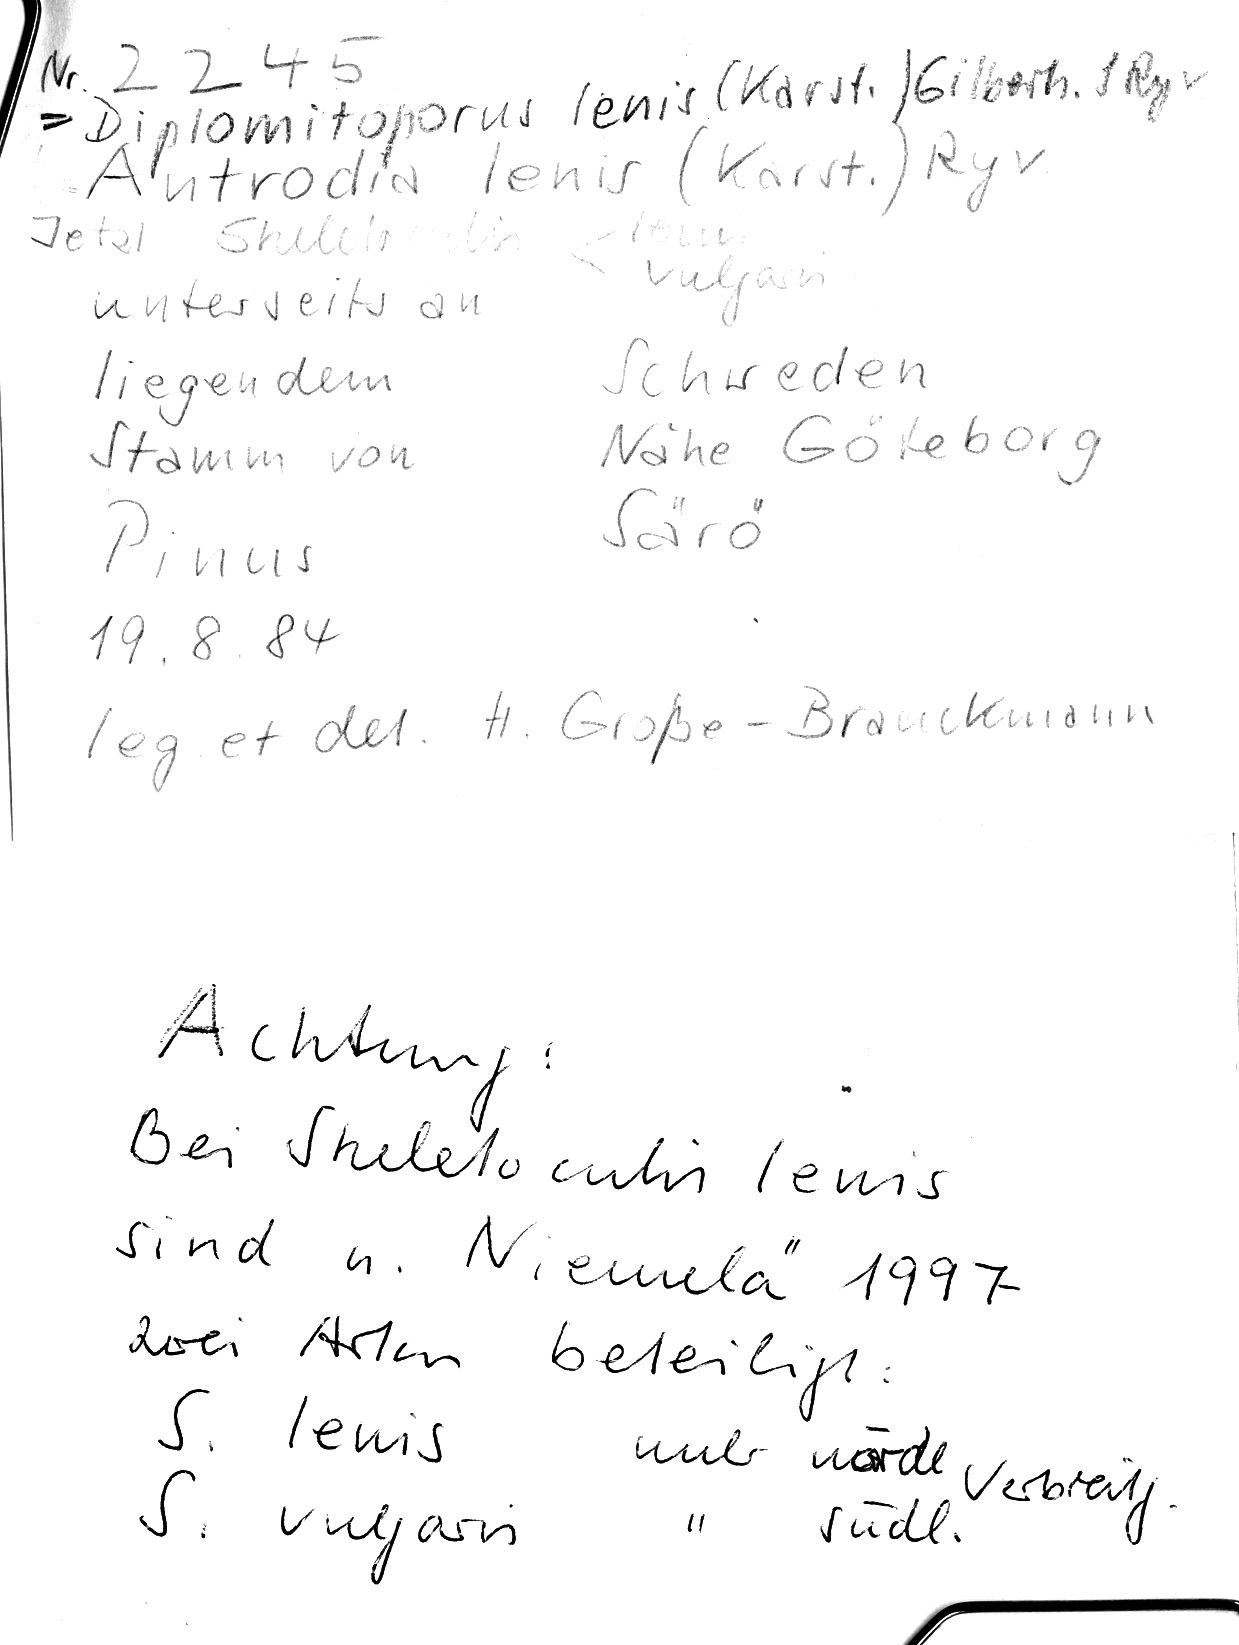 Nr. 2245
= Diplomitoporus lenis (Karst.) Gilbertn. & Ryv
Antrodia lenis (Karst.) Ryv.
Jetzt Skeletocutis < lenis
vulgaris
unterseits an
liegendem
Stamm von
Pinus
19.8.84
Schweden
Nähe Göteborg
Särö
leg. et det. H. Große-Brauckmann
Achtung:
Bei Skeletocutis lenis
sind n. Niemelä 1997
zwei Arten beteiligt:
S. lenis mehr nördl Verbreitg.
S. vulgaris " südl.